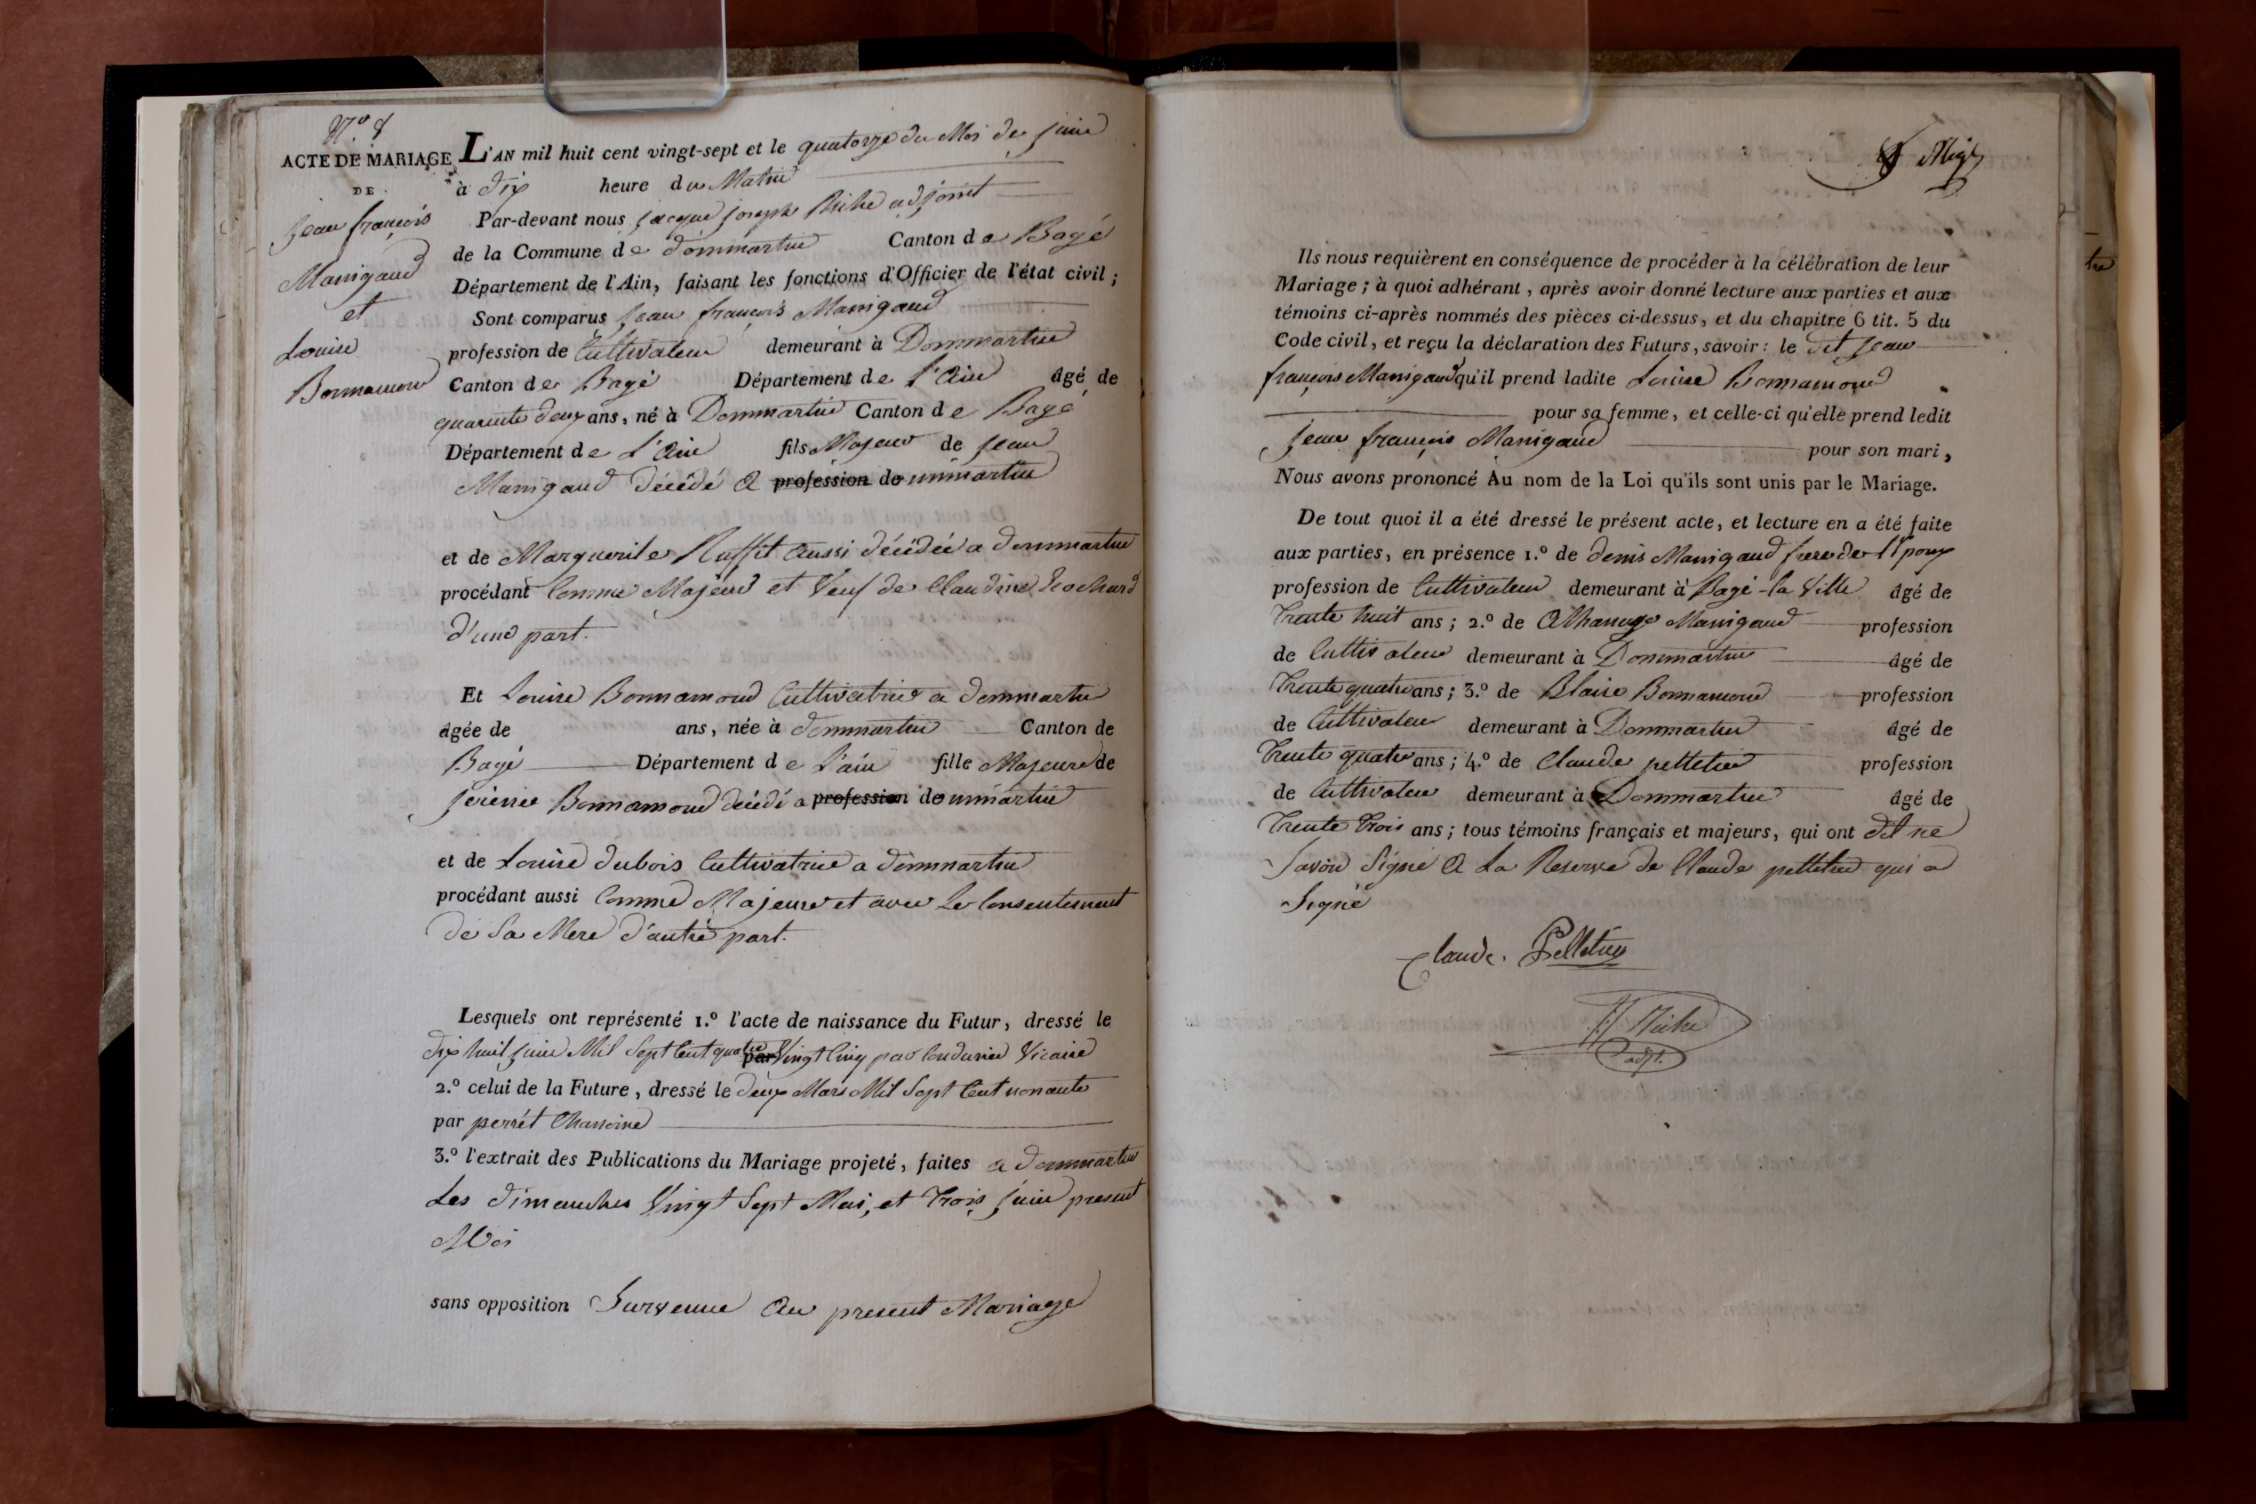 N.o 8
ACTE DE MARIAGE
DE
Jean françois
Manigaud
et
Louise
Bonnamour
L'AN mil huit cent vingt-sept et le quatorze du Moi de juin
à dix heure du Matin
Par-devant nous jacque joseph Riche adjoint
de la Commune de dommartin Canton de Bagé
Département de l'Ain, faisant les fonctions d'Officier de l'état civil ;
Sont comparus Jean françois Manigaud
profession de Cultivateur demeurant à Dommartin
Canton de Bagé Département de l'Ain âgé de
quarente deux ans, né à Dommartin Canton de Bagé
Département de L'Ain fils Majeur de Jean
Manigaud décédé a profession dommartin
et de Marguerite Ruffet aussi décédée a dommartin
procédant Comme Majeur et Veuf de Claudine
d'une part.
Et Louise Bonnamour Cultivatrice a dommartin
âgée de ans, née à dommartin Canton de
Bagé Département de L'ain fille Majeure de
Bonnamour décédé a profession dommartin
et de Louise dubois Cultivatrice a dommartin
procédant aussi Comme Majeure et avec Le Consentement
de Sa Mere d'autre part.
Lesquels ont représenté 1.º l'acte de naissance du Futur, dressé le
dix huit juin Mil Sept Cent quatre par Vingt Cinq par Vicaire
2.º celui de la Future, dressé le deux Mars Mil Sept Cent nonante
par perrét Chanoine
3.º l'extrait des Publications du Mariage projeté, faites a dommartin
Les dimanches Vingt Sept Mai, et Trois juin present
Moi
sans opposition Survenue au present Mariage
Ils nous requièrent en conséquence de procéder à la célébration de leur
Mariage ; à quoi adhérant, après avoir donné lecture aux parties et aux
témoins ci-après nommés des pièces ci-dessus, et du chapitre 6 tit. 5 du
Code civil, et reçu la déclaration des Futurs, savoir : le dit Jean
françois Manigaud qu'il prend ladite Louise Bonnamour
pour sa femme, et celle-ci qu'elle prend ledit
Jean françois Manigaud pour son mari,
Nous avons prononcé Au nom de la Loi qu'ils sont unis par le Mariage.
De tout quoi il a été dressé le présent acte, et lecture en a été faite
aux parties, en présence 1.º de denis Manigaud frere de l'Epoux
profession de Cultivateur demeurant à Bagé-la Ville âgé de
Trente huit ans ; 2.º de Manigaud profession
de Cultivateur demeurant à Dommartin âgé de
Trente quatre ans ; 3.º de Blaise Bonnamour profession
de Cultivateur demeurant à Dommartin âgé de
Trente quatre ans ; 4.º de Claude pelletier profession
de Cultivateur demeurant à Dommartin âgé de
Trente Trois ans ; tous témoins français et majeurs, qui ont dit ne
Savoir Signé a La Reserve de Claude pelletier qui a
Signé
Claude. Pelletier
Riche
adjt.